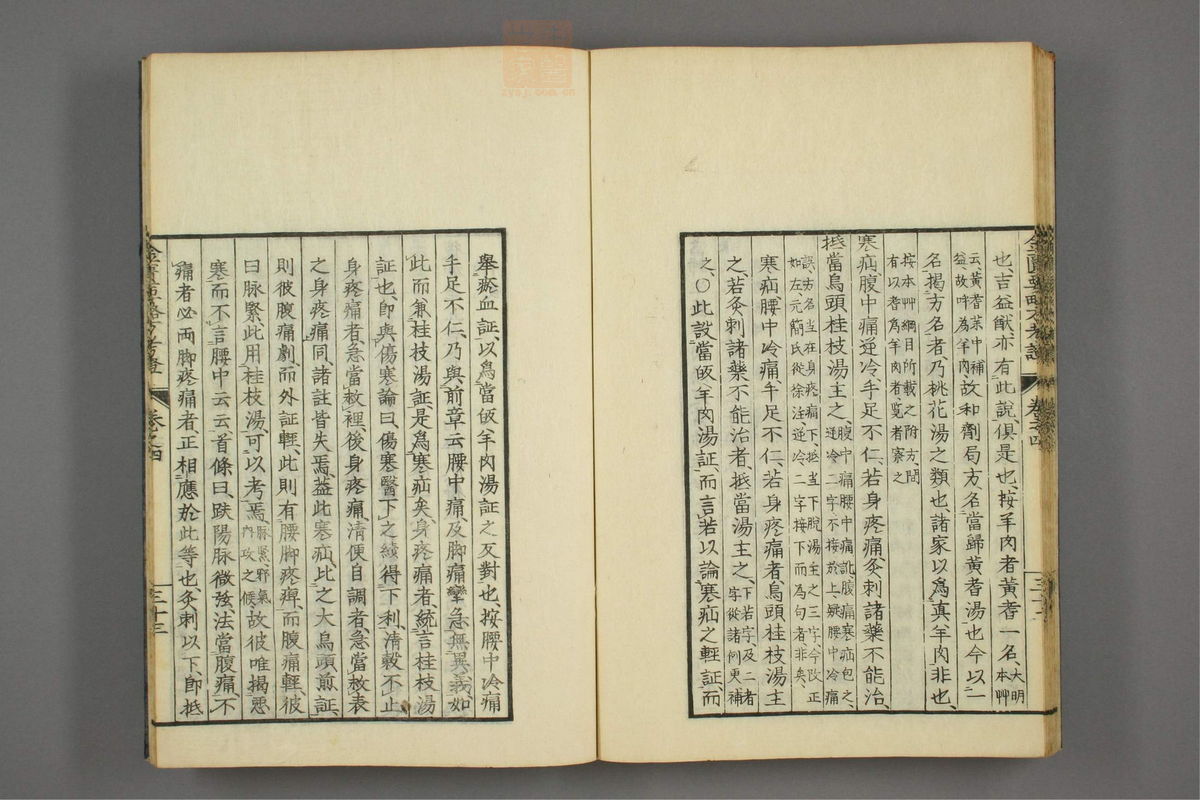 也、吉益猷、亦有此說、俱是也、按羊肉者黃耆一名、大明本艸
云黃耆藥中補益故呼為羊肉故和劑局方名當歸黃耆湯也今以一
名揭方名者、乃桃花湯之類也、諸家以為真羊肉非也、
按本艸綱目所載之附方、間有以耆為羊肉者、覽者察之
寒疝腹中痛逆冷手足不仁、若身疼痛灸刺諸藥不能治、
抵當烏頭桂枝湯主之、腹中痛腰中痛訛腹痛寒疝包之、逆冷二字不接於上、疑腰中冷痛
誤、方名当在身疼痛下、抵当下脫湯主之三字、今改正如左元簡氏從徐注逆冷二字接下而為句者非矣、
寒疝腰中冷痛、手足不仁、若身疼痛者、烏頭桂枝湯主
之、若灸刺諸藥不能治者、抵當湯主之、下若字及二者字從諸例更補
之、〇此設當皈羊肉湯証、而言若以論寒疝之輕証、而
舉瘀血証、以為當皈羊肉湯証之反對也、按腰中冷痛
手足不仁、乃與前章云腰中痛、及脚痛攣急無異義、如
此而兼桂枝湯証是為寒疝矣、身疼痛者、統言桂枝湯
証也、即與傷寒論曰、傷寒醫下之續得下利、清穀不止
身疼痛者、急當救裡、後身疼痛、清便自調者、急當救表
之身疼痛同、諸註皆失焉、蓋此寒疝、比之大烏頭煎証、
則彼腹痛劇、而外証輕、此則有腰脚疼痺、而腹痛輕、彼
曰脉緊、此用桂枝湯、可以考焉、脉緊、野氣內攻之候、故彼唯揭惡
寒而不言腰中云云、首條曰、趺陽脉微弦、法當腹痛、不
痛者必兩脚疼痛者、正相應於此等也、灸刺以下、即抵
金匱要略方考證
卷之四
三十三